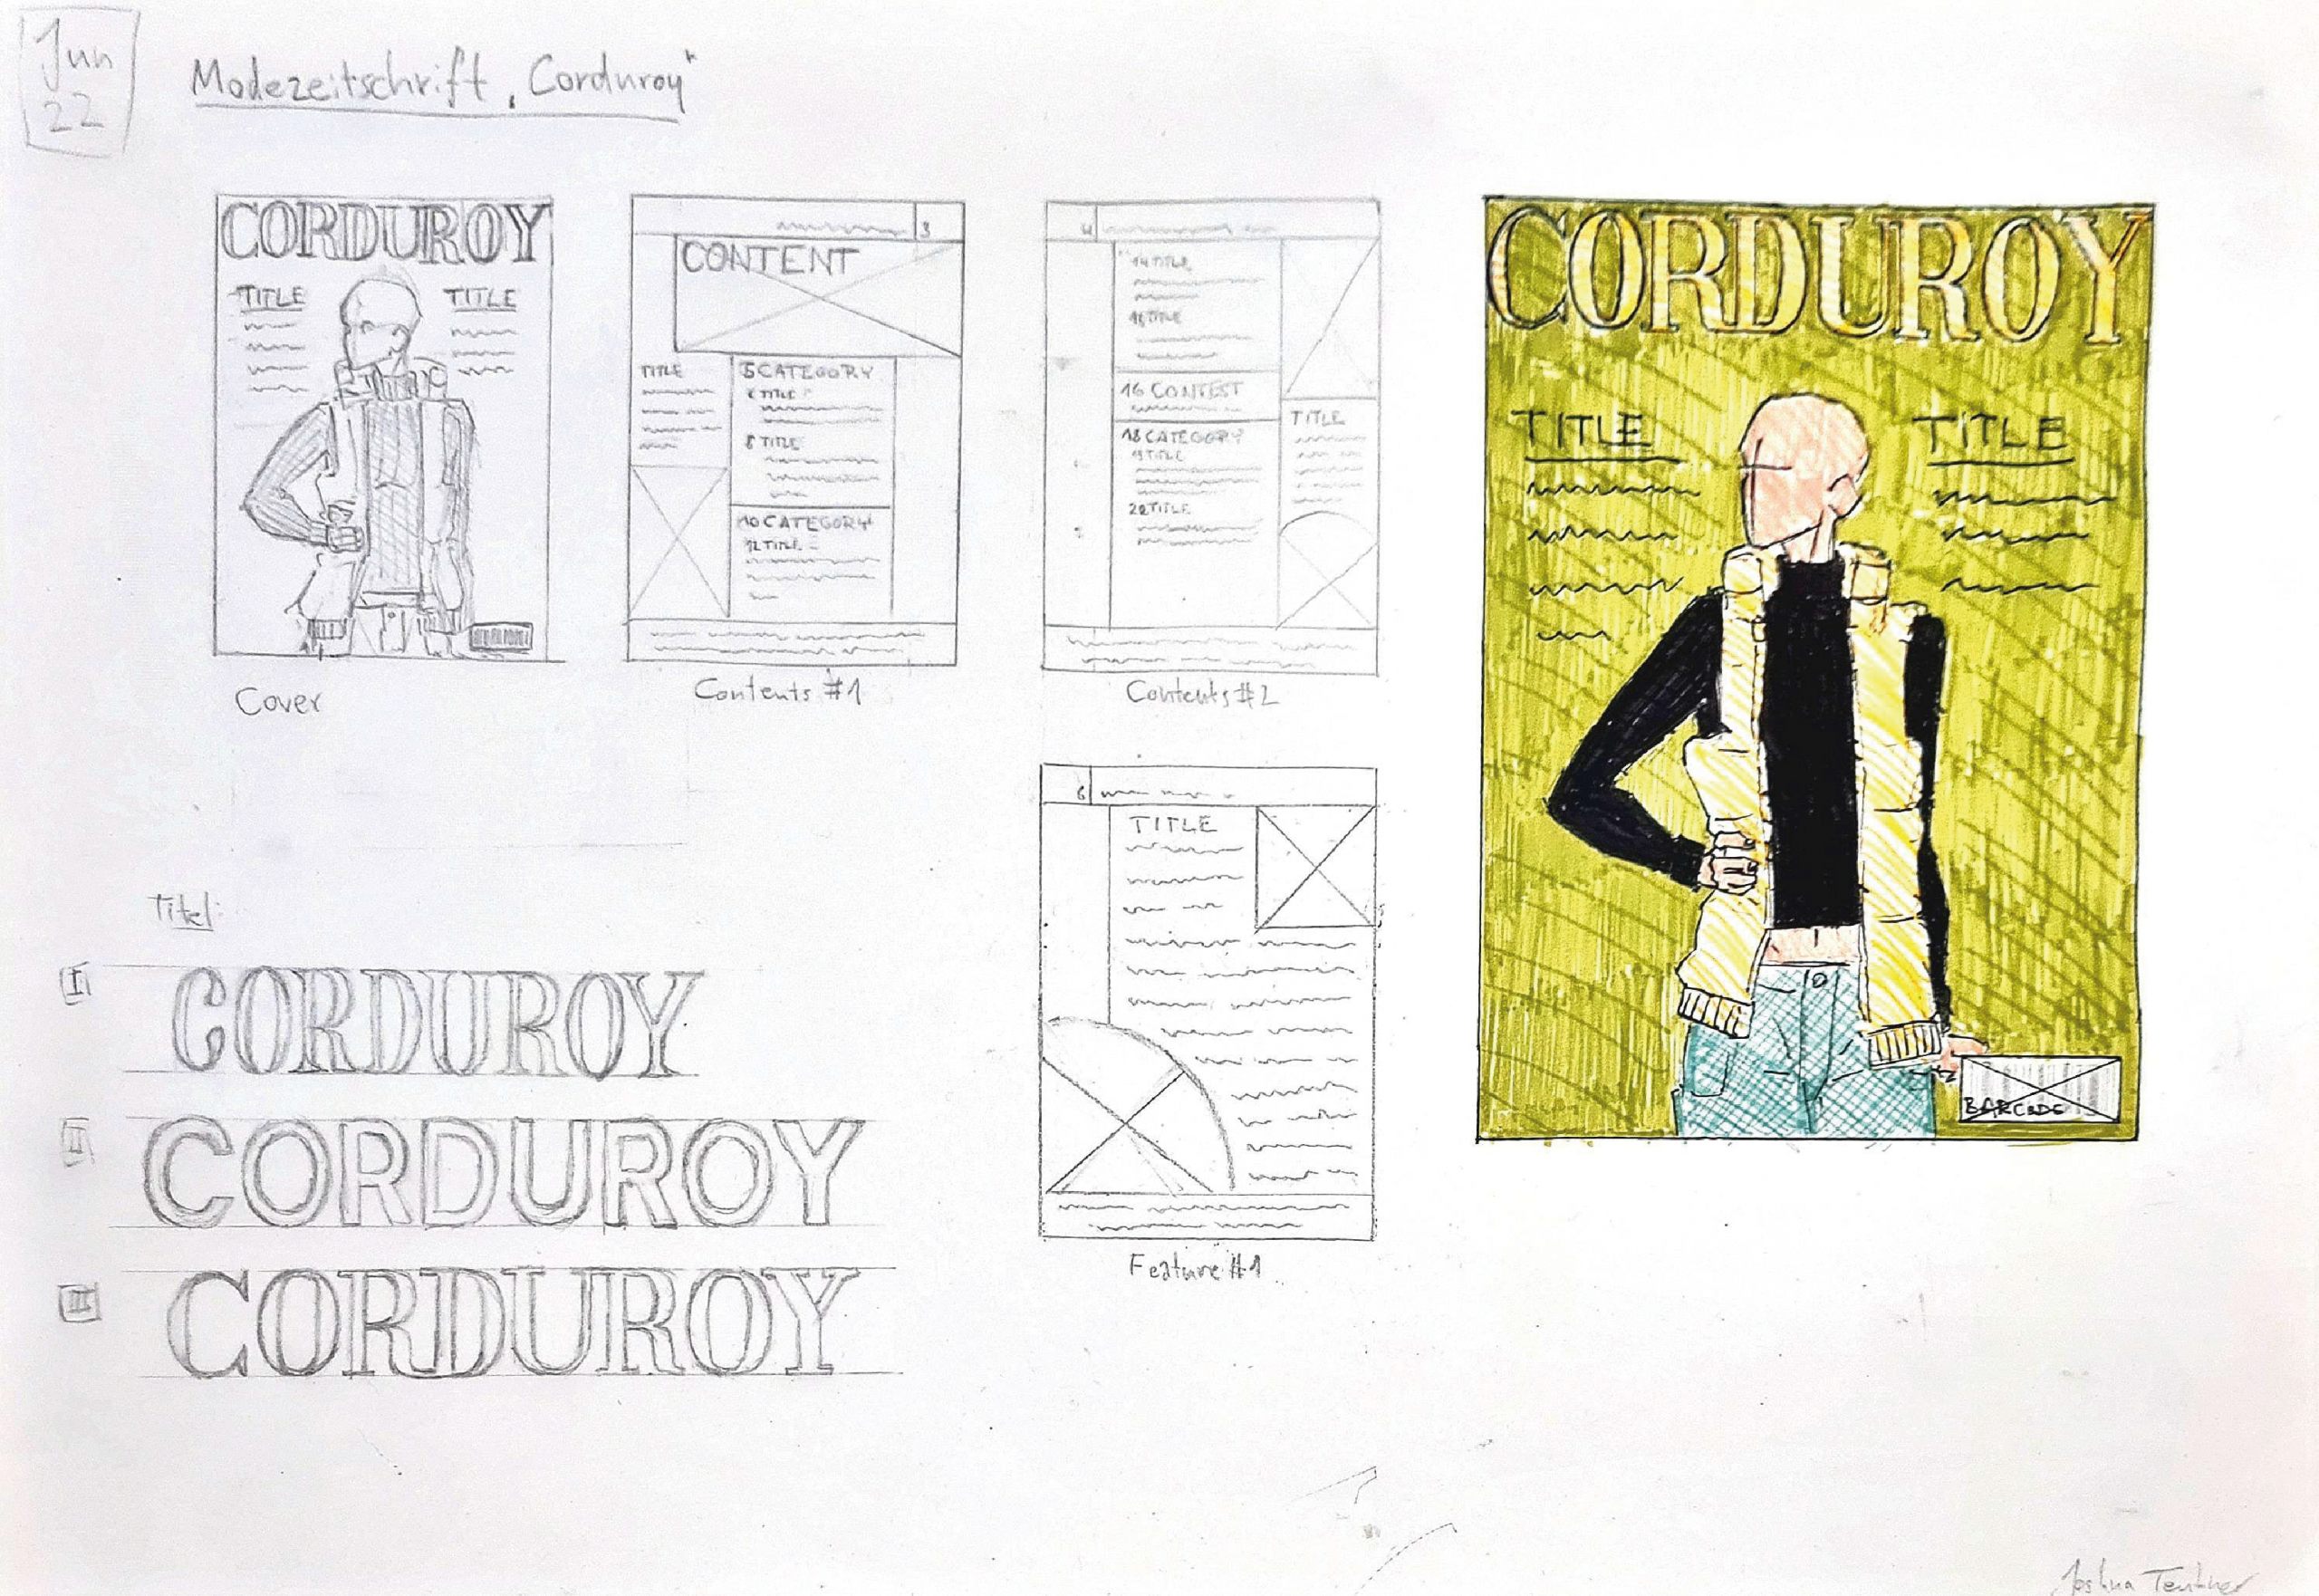 Jun
22
Modezeitschrift „Corduroy“
CORDUROY
TITLE
TITLE
Cover
3
CONTENT
TITLE
5 CATEGORY
6 TITLE
8 TITLE
10 CATEGORY
12 TITLE
Contents #1
4
14 TITLE
TITLE
16 CONTEST
18 CATEGORY
19 TITLE
22 TITLE
TITLE
Contents #2
6
TITLE
Feature #1
CORDUROY
TITLE
TITLE
BARCODE
Titel:
I
CORDUROY
II
CORDUROY
III
CORDUROY
Joshua